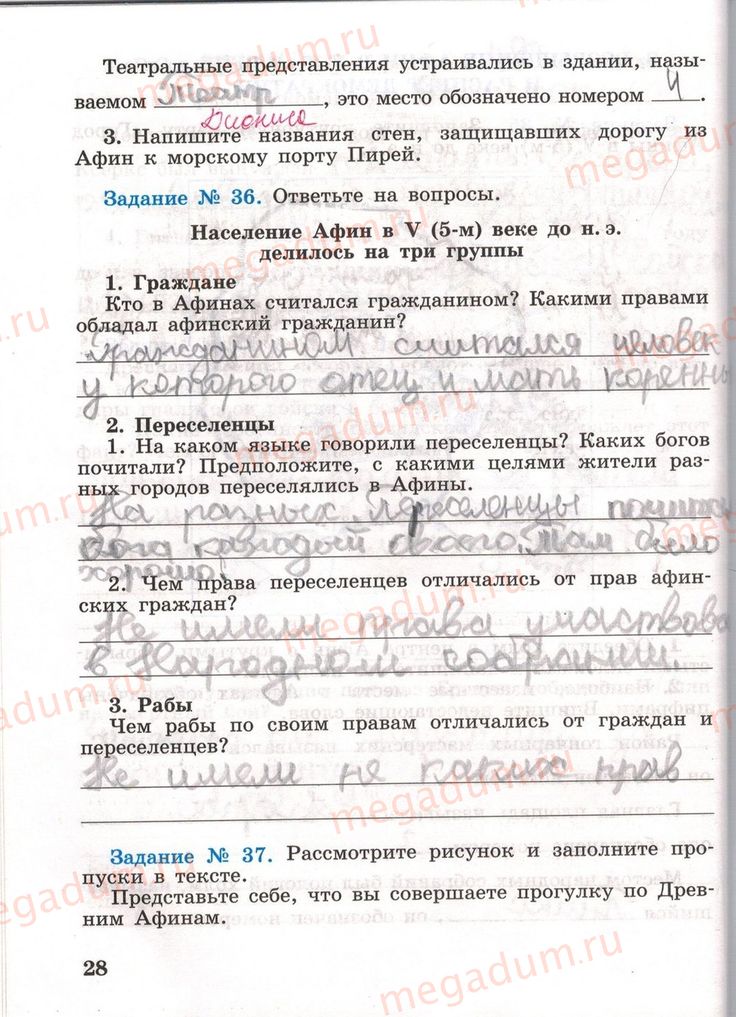 Театральные представления устраивались в здании, назы-
ваемом Театр, это место обозначено номером 4.
Диониса
3. Напишите названия стен, защищавших дорогу из
Афин к морскому порту Пирей.
Задание № 36. Ответьте на вопросы.
Население Афин в V (5-м) веке до н. э.
делилось на три группы
1. Граждане
Кто в Афинах считался гражданином? Какими правами
обладал афинский гражданин?
Гражданином считался человек
у которого отец и мать коренны
2. Переселенцы
1. На каком языке говорили переселенцы? Каких богов
почитали? Предположите, с какими целями жители раз-
ных городов переселялись в Афины.
На разных. Переселенцы почита
бога каждый своего, там было
хорошо.
2. Чем права переселенцев отличались от прав афин-
ских граждан?
Не имели права участвова
в Народном собрании.
3. Рабы
Чем рабы по своим правам отличались от граждан и
переселенцев?
Не имели не каких прав
Задание № 37. Рассмотрите рисунок и заполните про-
пуски в тексте.
Представьте себе, что вы совершаете прогулку по Древ-
ним Афинам.
28
megadum.ru